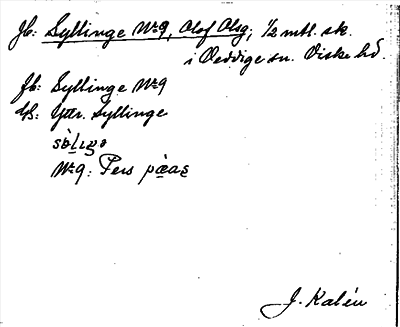 Jb: Syllinge No 9, Olof Olsg, 1/2 mtl. sk.
i Veddige sn. Viske hd.
Jb: Syllinge No 9
GS: Yttr. Syllinge
No 9: Pers
J. Kalén